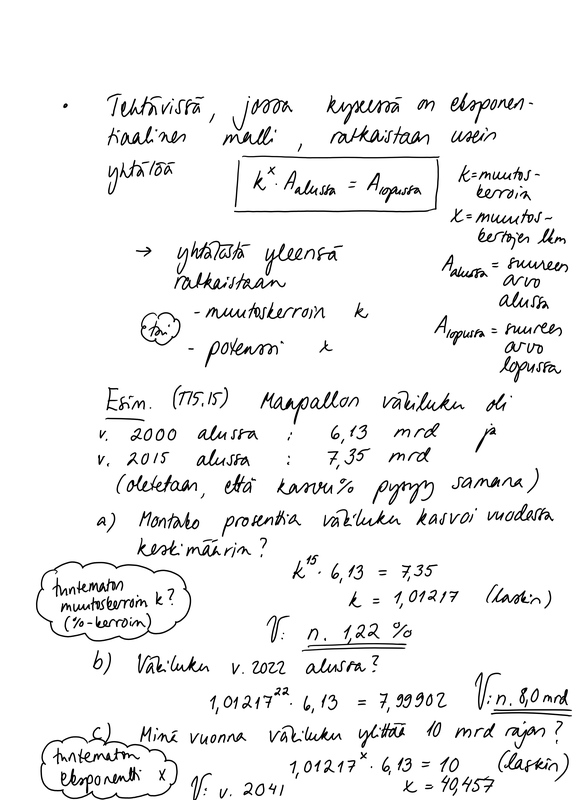 • Tehtävissä, jossa kyseessä on eksponen-
tiaalinen malli, ratkaistaan usein
yhtälöä
k^x · A_alussa = A_lopussa
k = muutos-
kerroin
x = muutos-
kertojen lkm
A_alussa = suureen
arvo
alussa
A_lopussa = suureen
arvo
lopussa
→ yhtälöstä yleensä
ratkaistaan
- muutoskerroin k
tai
- potenssi x
Esim. (T15.15) Maapallon väkiluku oli
v. 2000 alussa : 6,13 mrd ja
v. 2015 alussa : 7,35 mrd
(oletetaan, että kasvu% pysyy samana)
a) Montako prosenttia väkiluku kasvoi vuodessa
keskimäärin?
k^15 · 6,13 = 7,35
k = 1,01217 (laskin)
tuntematon
muutoskerroin k?
(%-kerroin)
V: n. 1,22 %
b) Väkiluku v. 2022 alussa?
1,01217^22 · 6,13 = 7,99902 V: n. 8,0 mrd
c) Minä vuonna väkiluku ylittää 10 mrd rajan?
tuntematon
eksponentti x
1,01217^x · 6,13 = 10 (laskin)
V: v. 2041 x = 40,457